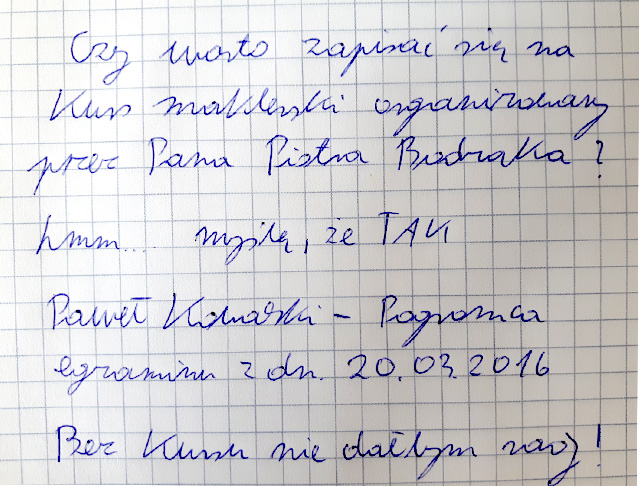 Czy warto zapisać się na
Kurs maklerski organizowany
przez Pana Piotra Biodraka?
hmm.... myślę, że TAK
Paweł Kowalski - Pogromca
egzaminu z dn. 20.03.2016
Bez Kursu nie dałbym rady!